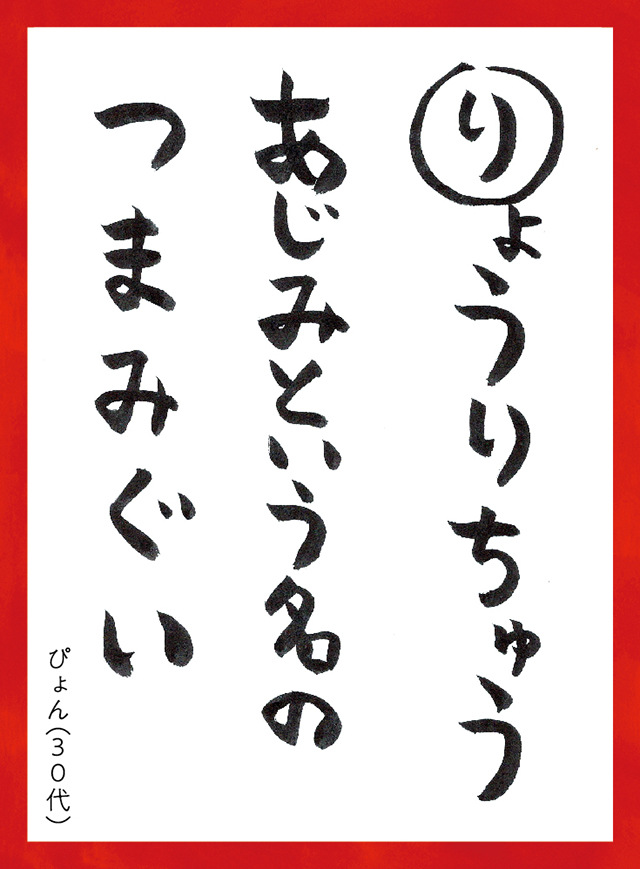 りょうりちゅう
あじみという名の
つまみぐい
ぴょん(30代)